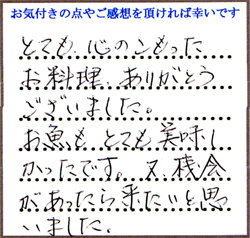 お気付きの点やご感想を頂ければ幸いです
とても、心のこもった
お料理、ありがとう
ございました。
お魚も、とても美味し
かったです。又、機会
があったら来たいと思
いました。